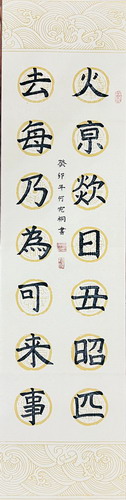 火京歘日丑昭匹
去每乃為可来事
癸卯年何宛桐書